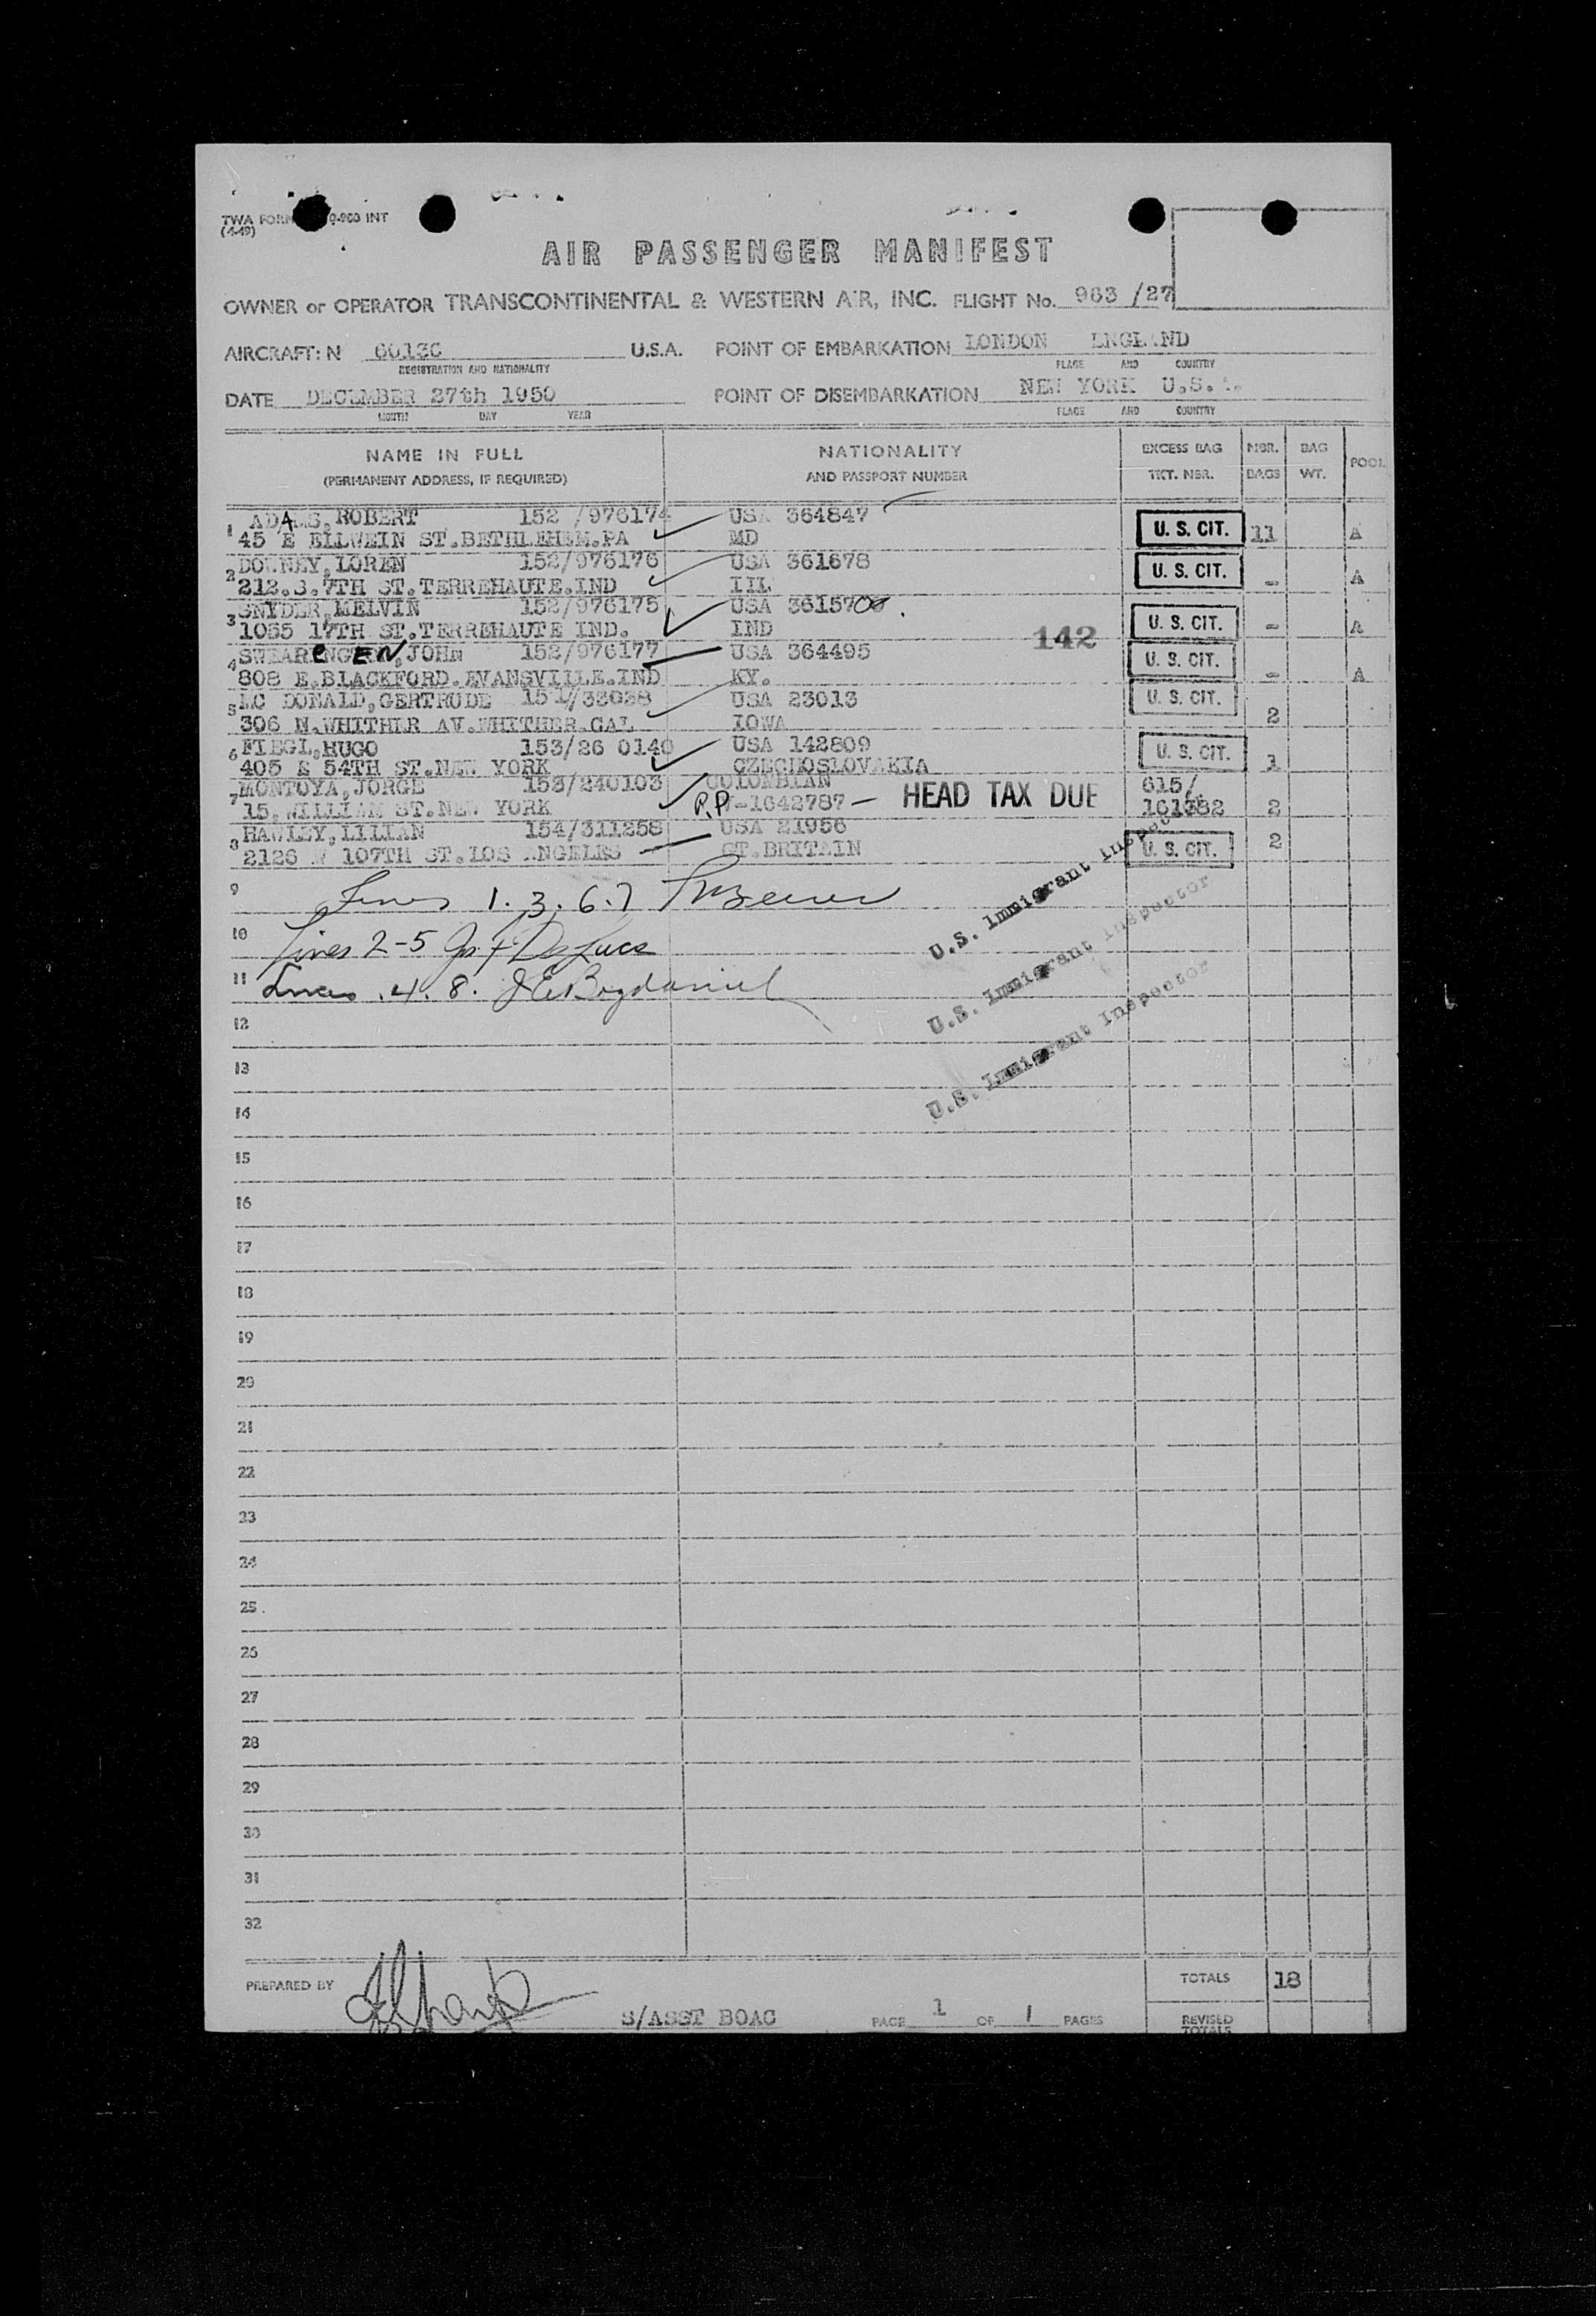 TWA FORM 0-960 INT
(4-49)
AIR PASSENGER MANIFEST
OWNER or OPERATOR TRANSCONTINENTAL & WESTERN AIR, INC. FLIGHT No. 963 /27
AIRCRAFT: N 6013C U.S.A. POINT OF EMBARKATION LONDON ENGLAND
REGISTRATION AND NATIONALITY PLACE AND COUNTRY
DATE DECEMBER 27th 1950 POINT OF DISEMBARKATION NEW YORK U.S.A.
MONTH DAY YEAR PLACE AND COUNTRY
NAME IN FULL NATIONALITY EXCESS BAG NBR. BAG POOL
(PERMANENT ADDRESS, IF REQUIRED) AND PASSPORT NUMBER TKT. NBR. BAGS WT.
1 ADAMS,ROBERT 152 /976174 USA 364847 U. S. CIT. 11 A
45 E ELLWEIN ST.BETHLEHEM.PA MD
2 DOWNEY,LOREN 152/976176 USA 361678 U. S. CIT. - A
212.S.7TH ST.TERREHAUTE.IND ILL
3 SNYDER,MELVIN 152/976175 USA 361570 U. S. CIT. - A
1055 17TH ST.TERREHAUTE IND. IND 142
4 SWEARENGEN,JOHN 152/976177 USA 364495 U. S. CIT. - A
808 E.BLACKFORD.EVANSVILLE.IND KY.
5 MC DONALD,GERTRUDE 151/33038 USA 23013 U. S. CIT. 2
306 N.WHITHER AV.WHITHER.CAL IOWA
6 FIEGL,HUGO 153/26 0140 USA 142809 U. S. CIT. 1
405 E 54TH ST.NEW YORK CZECHOSLOVAKIA
7 MONTOYA,JORGE 153/240103 COLOMBIAN HEAD TAX DUE 615/
15,WILLIAM ST.NEW YORK P.P. -1642787- 161382 2
8 HAWLEY,LILIAN 154/311258 USA 21956 U. S. CIT. 2
2126 W 107TH ST.LOS ANGELES GT.BRITAIN
9 Lines 1. 3. 6. 7 U.S. Immigrant Inspector
10 Lines 2-5 De Luca U.S. Immigrant Inspector
11 Lines 4. 8. J E Bogdaniel U.S. Immigrant Inspector
12
13
14
15
16
17
18
19
20
21
22
23
24
25
26
27
28
29
30
31
32
PREPARED BY S/ASST BOAC PAGE 1 OF 1 PAGES TOTALS 18
REVISED
TOTALS